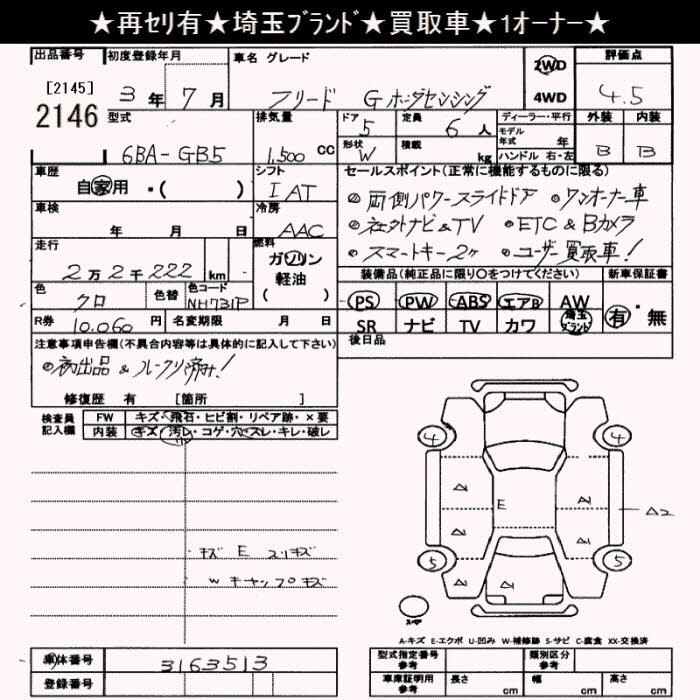 ★再セリ有★埼玉ﾌﾞﾗﾝﾄﾞ★買取車★1オーナー★
出品番号 初度登録年月 車名 グレード 評価点
[2145]
2146
3年 7月 フリード Gホンダセンシング 2WD 4WD 4.5
型式 排気量 ドア 定員 ディーラー・平行 外装 内装
6BA-GB5 1,500 cc 5 6人 モデル年式 年 B B
形状 W 積載 kg ハンドル 右・左
車歴 シフト セールスポイント(正常に機能するものに限る)
自家用・( ) I AT
両側パワースライドドア ・ワンオーナー車
車検 冷房
年 月 日 AAC
社外ナビ&TV ・ETC&Bカメラ
走行 燃料
2万2千222km ガソリン 軽油 ( )
スマートキー2ケ ・ユーザー買取車!
色 色替 色コード 装備品(純正品に限り○をつけてください) 新車保証書
クロ NH731P
PS PW ABS エアB AW 有・無
R券 10,060円 名変期限 月 日
SR ナビ TV カワ 埼玉ブランド
注意事項申告欄(不具合内容等は具体的に記入して下さい) 後日品
初出品&ルークリ済み!
修復歴 有 [箇所 ]
検査員記入欄 FW キズ・飛石・ヒビ割・リペア跡・×要
内装 キズ・汚レ・コゲ・穴・スレ・キレ・破レ
4 4
E
A2
5 5
キズ E スリキズ
W
A-キズ E-エクボ U-凹み W-補修跡 S-サビ C-腐食 XX-交換済
車体番号 3163513
登録番号
型式指定番号参考 類別区分参考
車庫証明用参考 長さ cm 幅 cm 高さ cm